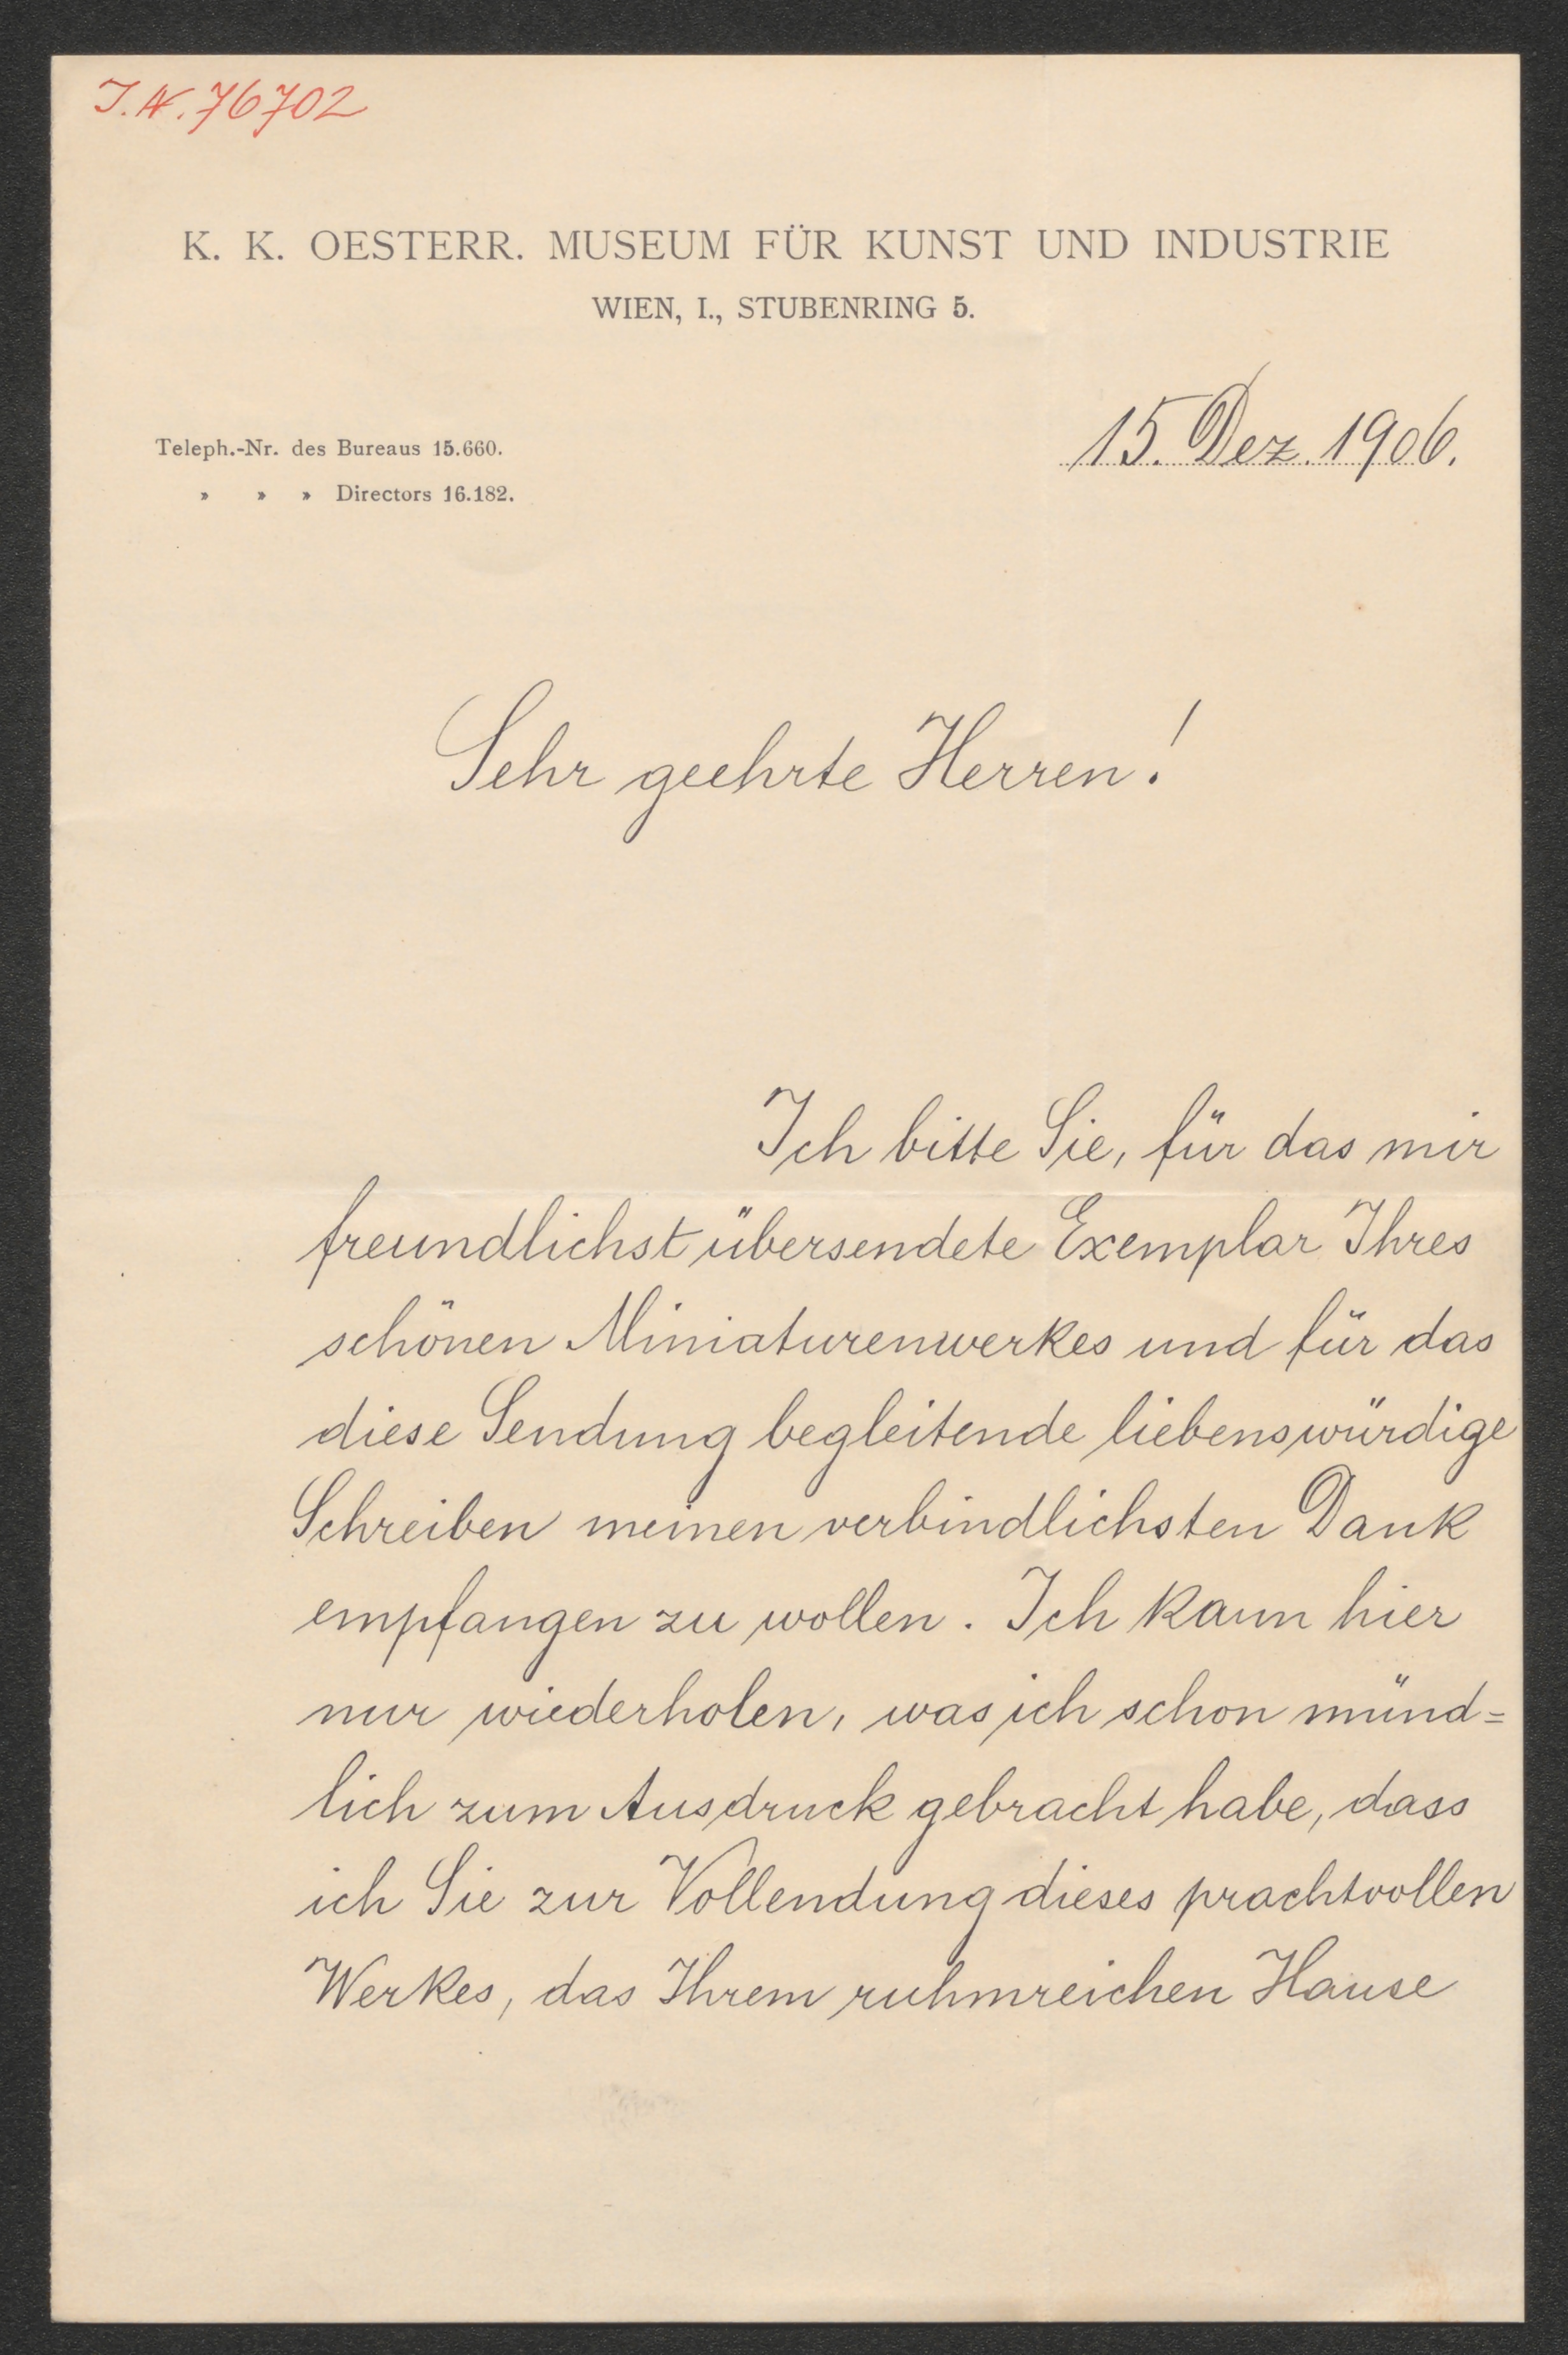 J.N. 76702
K. K. OESTERR. MUSEUM FÜR KUNST UND INDUSTRIE
WIEN, I., STUBENRING 5.
15. Dez. 1906.
Teleph.-Nr. des Bureaus 15.660.
» » » Directors 16.182.
Sehr geehrte Herren!
Ich bitte Sie, für das mir
freundlichst übersendete Exemplar Ihres
schönen Miniaturenwerkes und für das
diese Sendung begleitende liebenswürdige
Schreiben meinen verbindlichsten Dank
empfangen zu wollen. Ich kann hier
nur wiederholen, was ich schon münd=
lich zum Ausdruck gebracht habe, dass
ich Sie zur Vollendung dieses prachtvollen
Werkes, das Ihrem ruhmreichen Hause